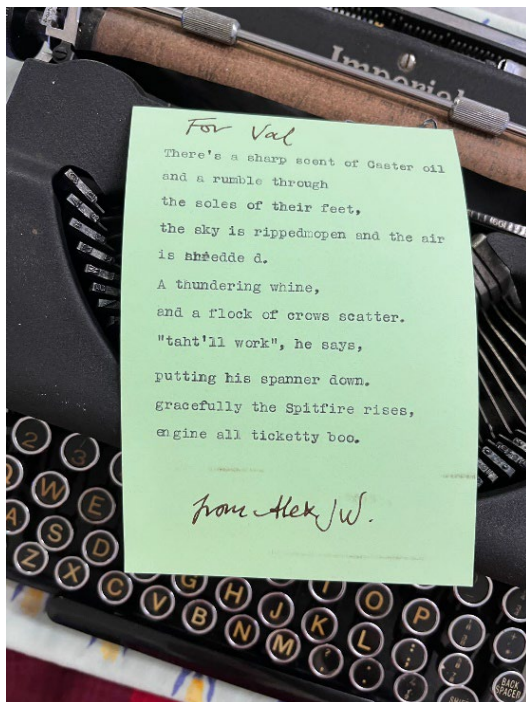 Imperial
For Val
There's a sharp scent of Caster oil
and a rumble through
the soles of their feet,
the sky is rippedmopen and the air
is shredde d.
A thundering whine,
and a flock of crows scatter.
"taht'll work", he says,
putting his spanner down.
gracefully the Spitfire rises,
engine all ticketty boo.
from Alek JW.
2 3
Q W E
A S D
Z X C V B N M
G H J K L
I O P
BACK SPACER